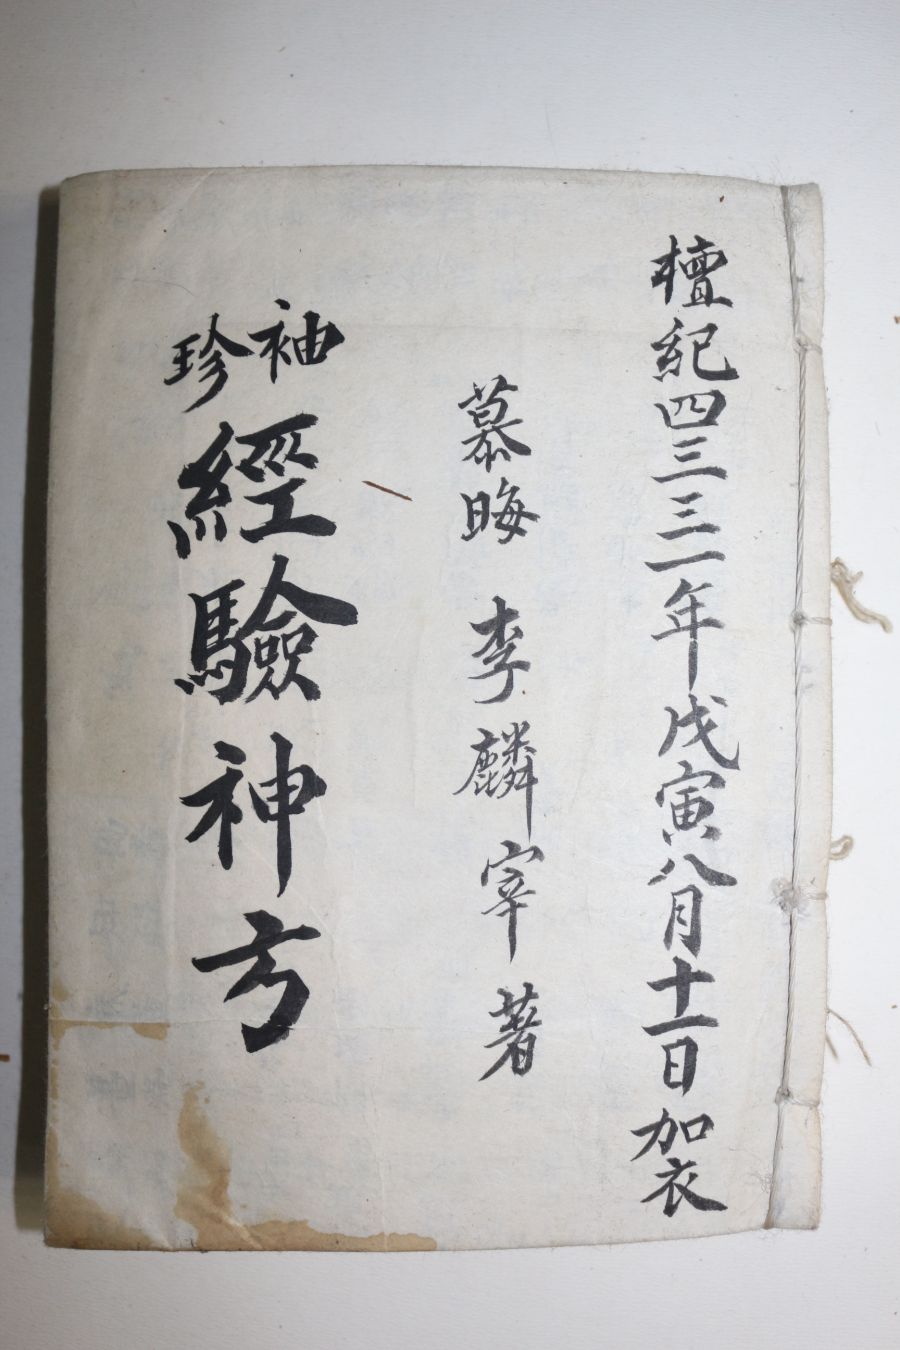 檀紀四三三一年戊寅八月十一日加衣
慕晦 李麟宰 著
袖珍 經驗神方